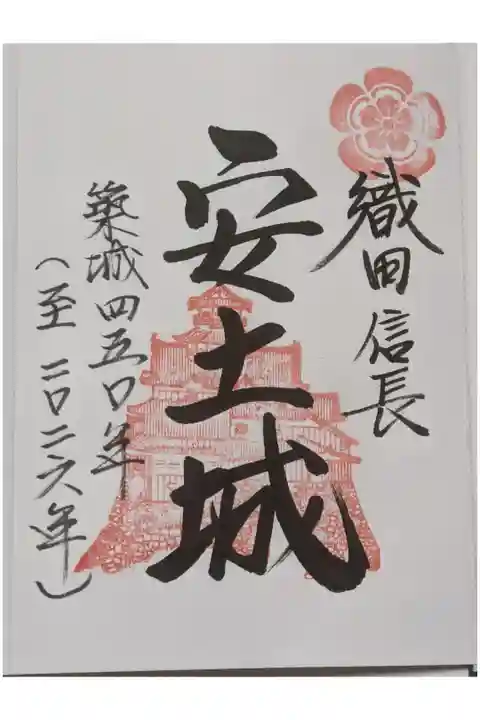 織田信長
安土城
築城四五〇年
（至 二〇二六年）